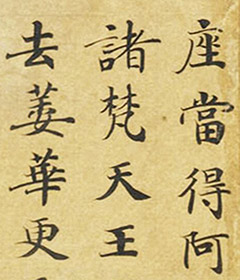 座當得阿
諸梵天王
去萎華更